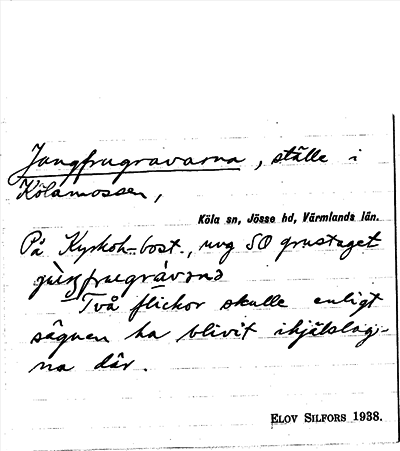 Jungfrugravarna, ställe i
Kölamossen,
Köla sn, Jösse hd, Värmlands län.
På Kyrkoh.-bost., nvg SO grustaget
Två flickor skulle enligt
sägnen ha blivit ihjälslag-
na där.
ELOV SILFORS 1938.